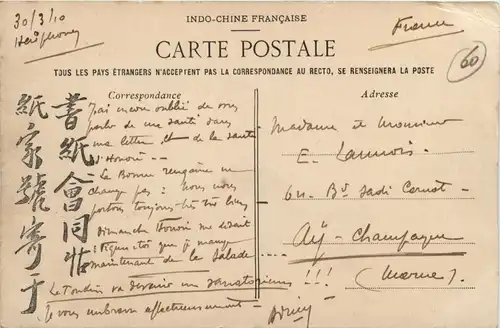 30/3/10
INDO-CHINE FRANÇAISE
France
CARTE POSTALE
60
TOUS LES PAYS ÉTRANGERS N'ACCEPTENT PAS LA CORRESPONDANCE AU RECTO, SE RENSEIGNER A LA POSTE
Correspondance
J'ai encore oublié de vous
parler de ma santé dans
ma lettre et de la santé
d'Honoré --
La Bonne rengaine ne
change pas : Nous nous
portons toujours très très bien
maintenant de la salade
Le Tonkin va devenir un sanatorium !!!
je vous embrasse affectueusement
書紙會同
紙家號寄于
Adresse
Madame et Monsieur
E. Launois
64 - Bd Sadi Carnot -
Aÿ - Champagne
(Marne).